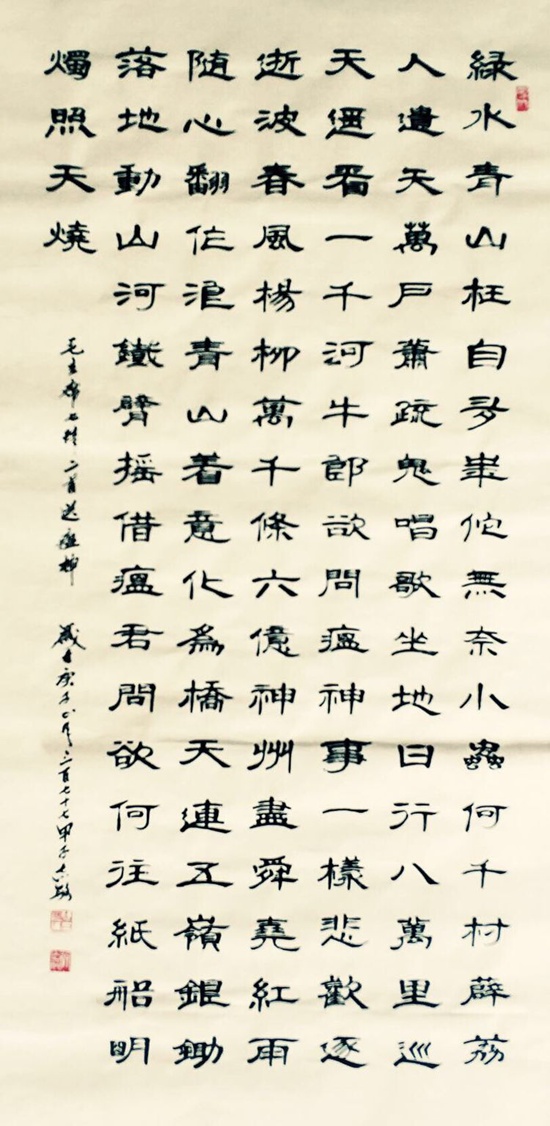 緑水青山枉自多華佗無奈小蟲何千村薜荔
人遺矢萬戶蕭疏鬼唱歌坐地日行八萬里巡
天遥看一千河牛郎欲問瘟神事一樣悲歡逐
逝波春風楊柳萬千條六億神州盡舜堯紅雨
随心翻作浪青山着意化為橋天連五嶺銀鋤
落地動山河鐵臂摇借瘟君問欲何往紙船明
燭照天燒
毛主席七律二首送瘟神 歲在庚子七月三百七十七甲子